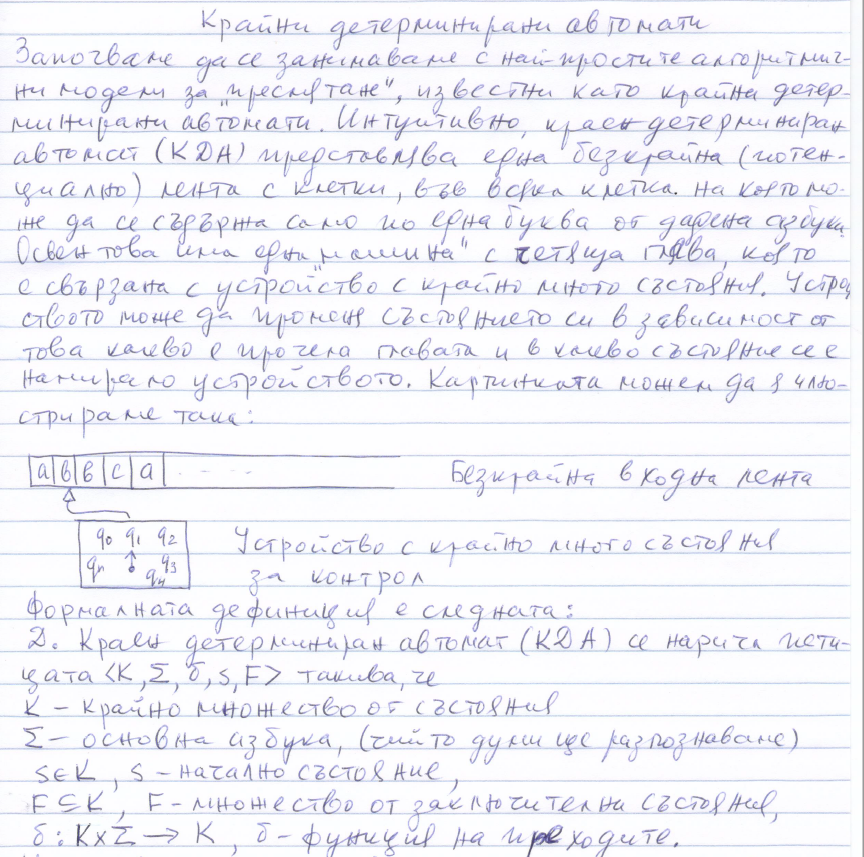 Крайни детерминирани автомати
Започваме да се занимаваме с най-простите алгоритмич-
ни модели за "пресмятане", известни като крайни детер-
минирани автомати. Интуитивно, краен детерминиран
автомат (КДА) представлява една безкрайна (потен-
циално) лента с клетки, във всяка клетка на която мо-
же да се съдържа само по една буква от дадена азбука.
Освен това има една "машина" с четяща глава, която
е свързана с устройство с крайно много състояния. Устрой
ството може да променя състоянието си в зависимост от
това какво е прочела главата и в какво състояние се е
намирало устройството. Картинката можем да я илю-
стрираме така:
а в в с а . - - -
Безкрайна входна лента
q0 q1 q2
qn q3
q4
Устройство с крайно много състояния
за контрол
Формалната дефиниция е следната:
Д. Краен детерминиран автомат (КДА) се нарича пети-
цата <K, Σ, δ, s, F> такива, че
K - крайно множество от състояния
Σ - основна азбука, (чийто думи ще разпознаваме)
s∈K, s - начално състояние,
F⊆K, F - множество от заключителни състояния,
δ: K×Σ → K, δ - функция на преходите.